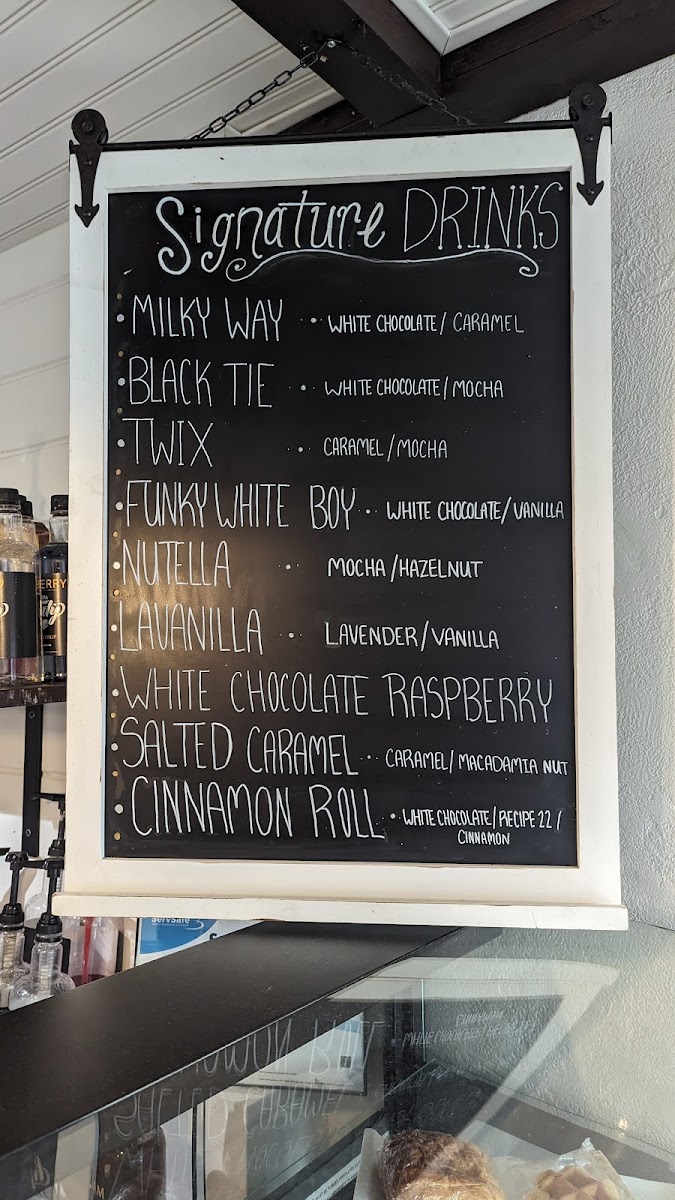 Signature DRINKS
MILKY WAY WHITE CHOCOLATE/ CARAMEL
BLACK TIE WHITE CHOCOLATE/MOCHA
TWIX CARAMEL/MOCHA
FUNKY WHITE BOY WHITE CHOCOLATE/VANILLA
NUTELLA MOCHA/HAZELNUT
LAVANILLA LAVENDER/VANILLA
WHITE CHOCOLATE RASPBERRY
SALTED CARAMEL CARAMEL/MACADAMIA NUT
CINNAMON ROLL WHITE CHOCOLATE/RECIPE 22/
CINNAMON
ERRY
ServSafe